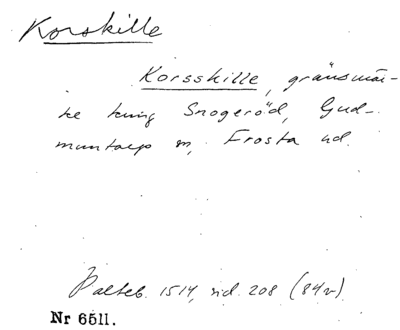 Korskille
Korsskille, gränsmär-
ke kring Snogeröd, Gud-
muntorp sn, Frosta hd.
Palteb. 1514, sid. 208 (84v).
Nr 6511.